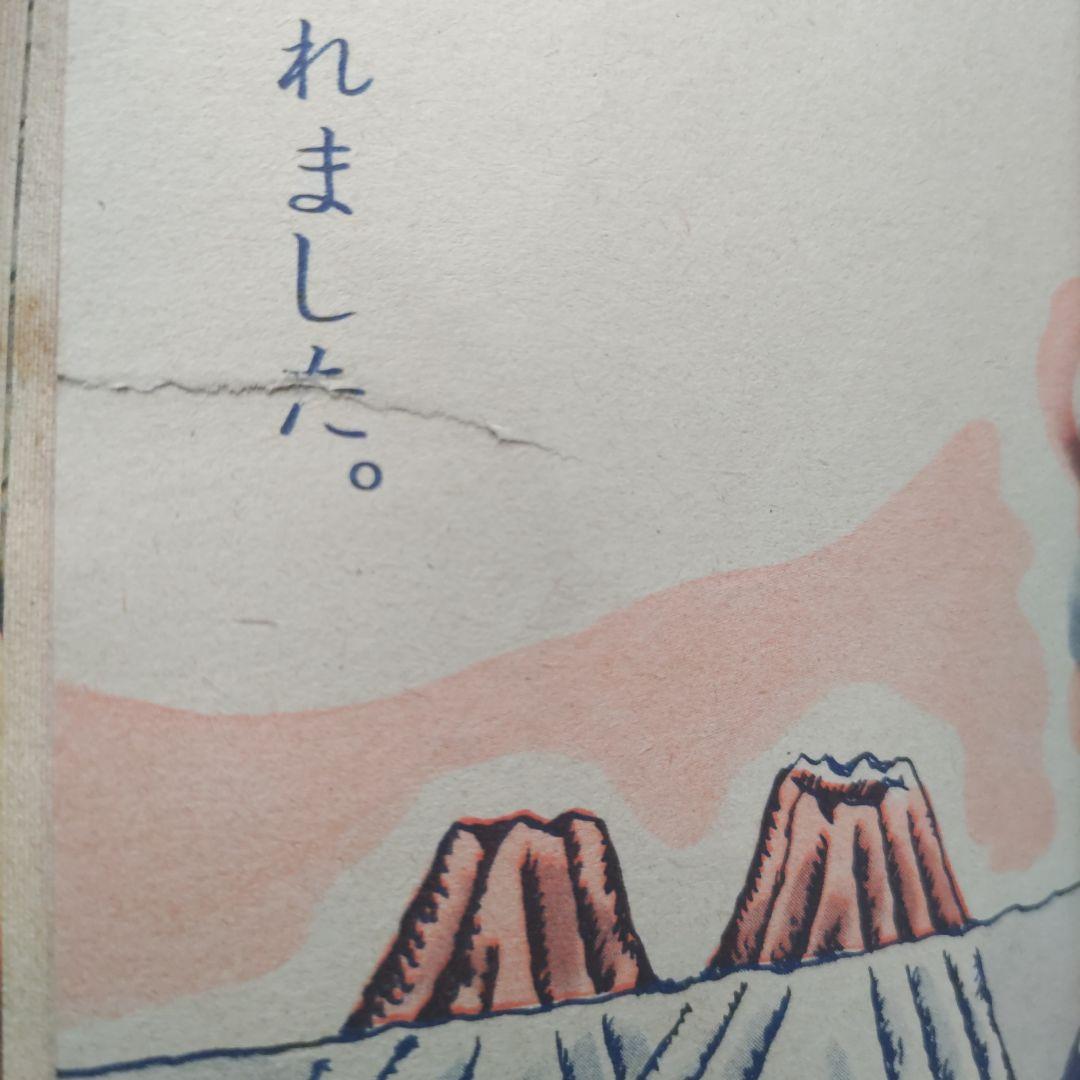 れました。